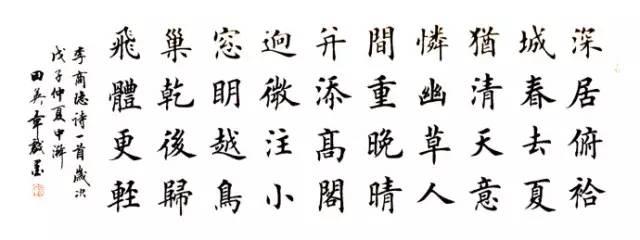 深居俯袷
城春去夏
猶清天意
憐幽草人
間重晚晴
并添髙閣
迥微注小
窓明越鳥
巢乾後歸
飛體更輕
李商隐诗一首歲次
戊子仲夏中澣
田英章